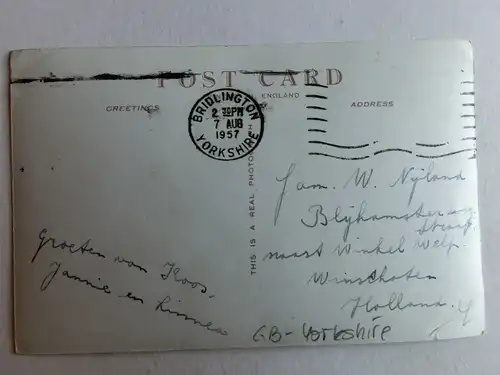 POST CARD
GREETINGS
ENGLAND
ADDRESS
BRIDLINGTON
2 30 PM
7 AUG
1957
YORKSHIRE
THIS IS A REAL PHOTOGRAPH
Groeten van Koos.
Jannie en
Fam. W. Nijland
Blijhamster
straat
naast Winkel Welp
Winschoten
Holland.
GB-Yorkshire